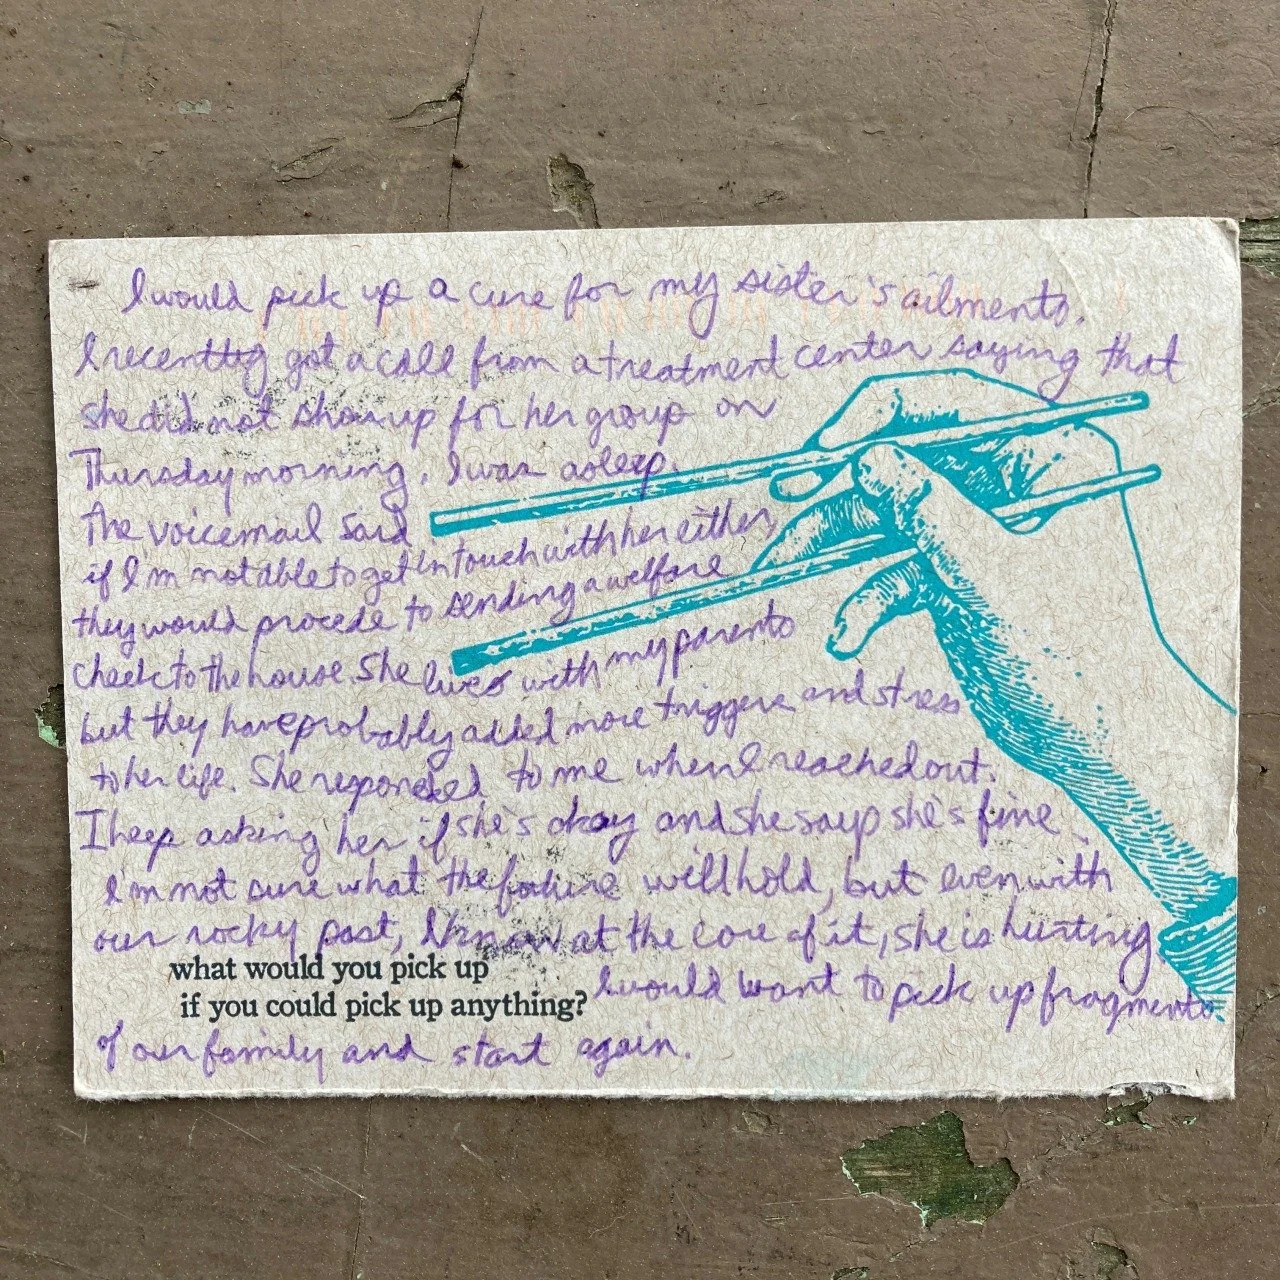 I would pick up a cure for my sister's ailments.
I recently got a call from a treatment center saying that
she did not show up for her group on
Thursday morning. I was asleep.
The voicemail said
if I'm not able to get in touch with her either,
they would procede to sending a welfare
check to the house. She lives with my parents
but they have probably added more triggers and stress
to her life. She responded to me when I reached out.
I keep asking her if she's okay and she says she's fine.
I'm not sure what the future will hold, but even with
our rocky past, I know at the core of it, she is hurting.
what would you pick up
if you could pick up anything?
I would want to pick up fragments
of our family and start again.